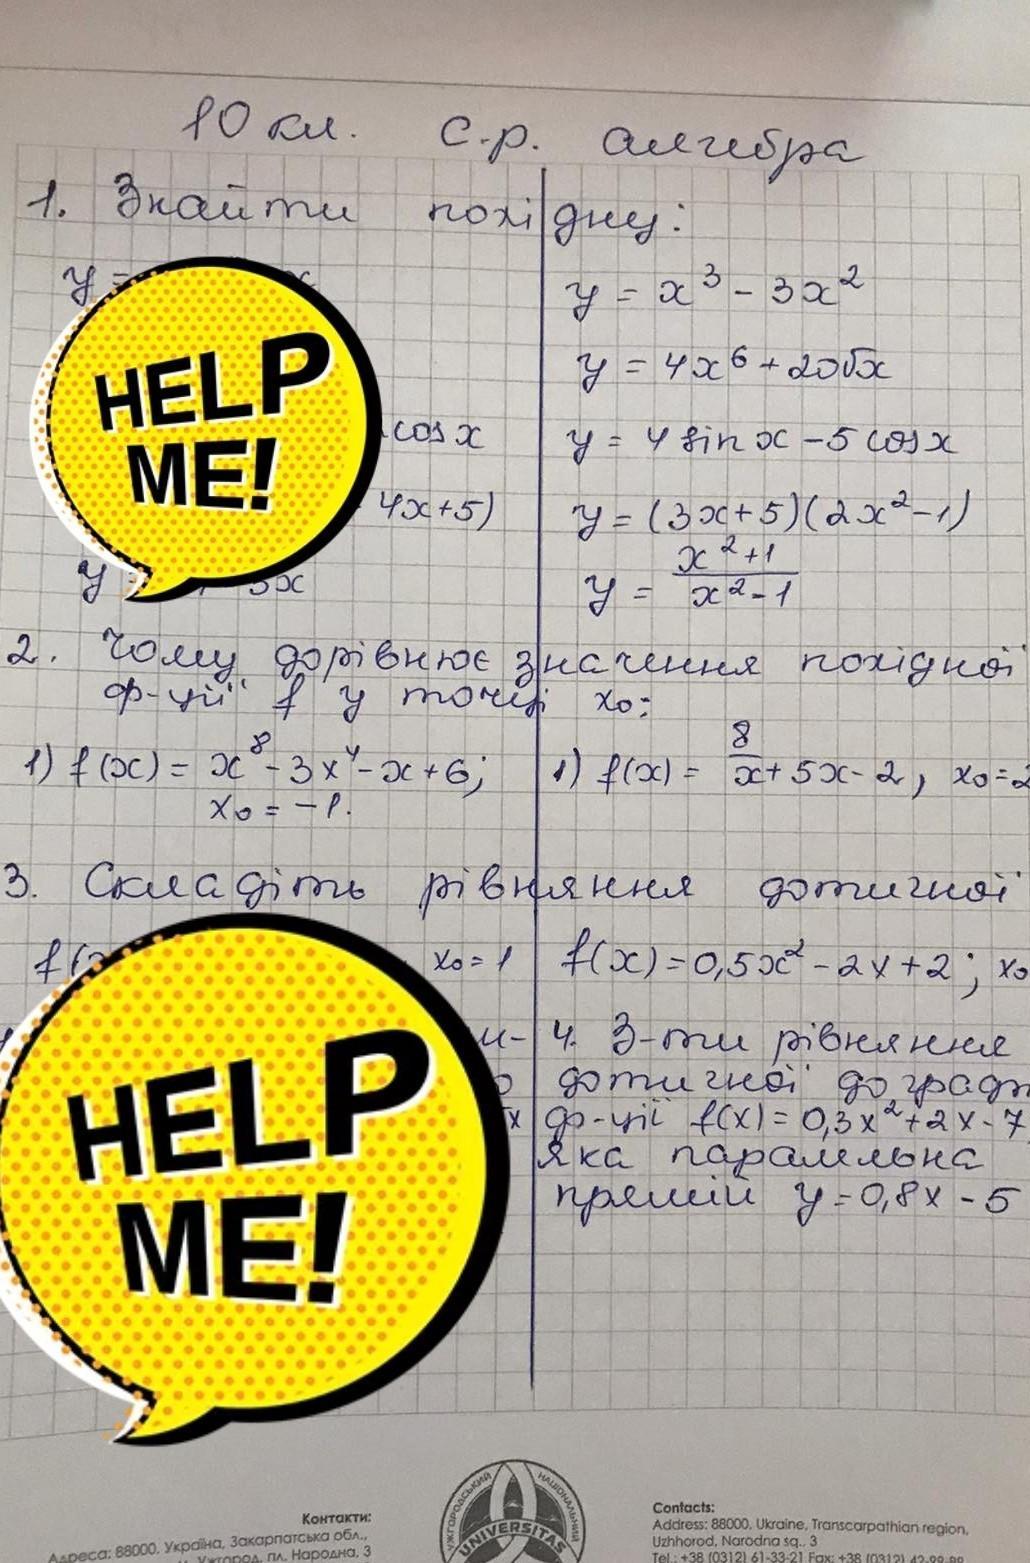 10 кл. С.р. алгебра
1. Знайти похідну:
y =
y = x³ - 3x²
HELP
ME!
y = 4x⁶ + 20√x
cos x
y = 4 sin x - 5 cos x
4x+5)
y = (3x+5)(2x²-1)
y =
y = \frac{x²+1}{x²-1}
2. Чому дорівнює значення похідної
ф-ції f у точці x₀:
1) f(x) = x⁸ - 3x⁴ - x + 6;
x₀ = -1.
1) f(x) = \frac{8}{x} + 5x - 2, x₀ = 2
3. Складіть рівняння дотичної
x₀ = 1
f(x) = 0,5x² - 2x + 2; x₀
HELP
ME!
4. З-ти рівняння
дотичної до графі
ф-ції f(x) = 0,3x² + 2x - 7
яка паралельна
прямій y = 0,8x - 5
Контакти:
Адреса: 88000, Україна, Закарпатська обл.,
Ужгород, пл. Народна, 3
УЖГОРОДСЬКИЙ НАЦІОНАЛЬНИЙ
UNIVERSITAS
Contacts:
Address: 88000, Ukraine, Transcarpathian region,
Uzhhorod, Narodna sq., 3
Tel.: +38 (0312) 61-33-21 Fax: +38 (0312)